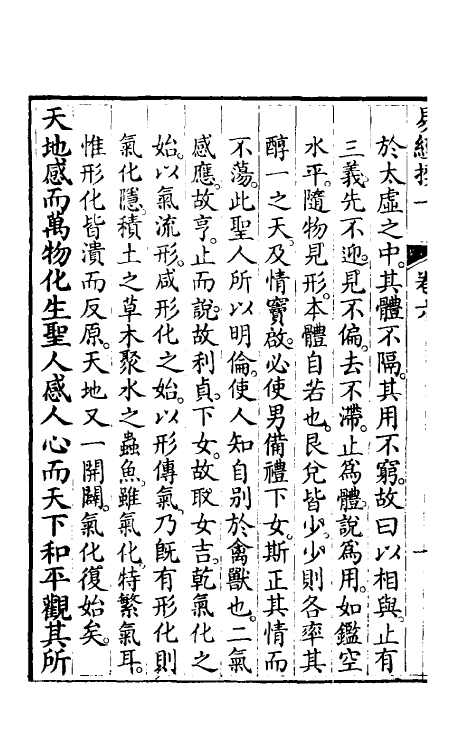 易經揆一 卷六
於太虛之中。其體不隔。其用不窮。故曰以相與。止有
三義。先不迎。見不偏。去不滯。止爲體。說爲用。如鑑空
水平。隨物見形。本體自若也。艮兌皆少。少則各率其
醇一之天。及情竇啟。必使男備禮下女。斯正其情而
不蕩。此聖人所以明倫。使人知自別於禽獸也。二氣
感應。故亨。止而說。故利貞。下女。故取女吉。乾氣化之
始。以氣流形。咸形化之始。以形傳氣。乃旣有形化則
氣化隱。積土之草木聚水之蟲魚。雖氣化。特繁氣耳。
惟形化皆潰而反原。天地又一開闢。氣化復始矣。
天地感而萬物化生聖人感人心而天下和平觀其所